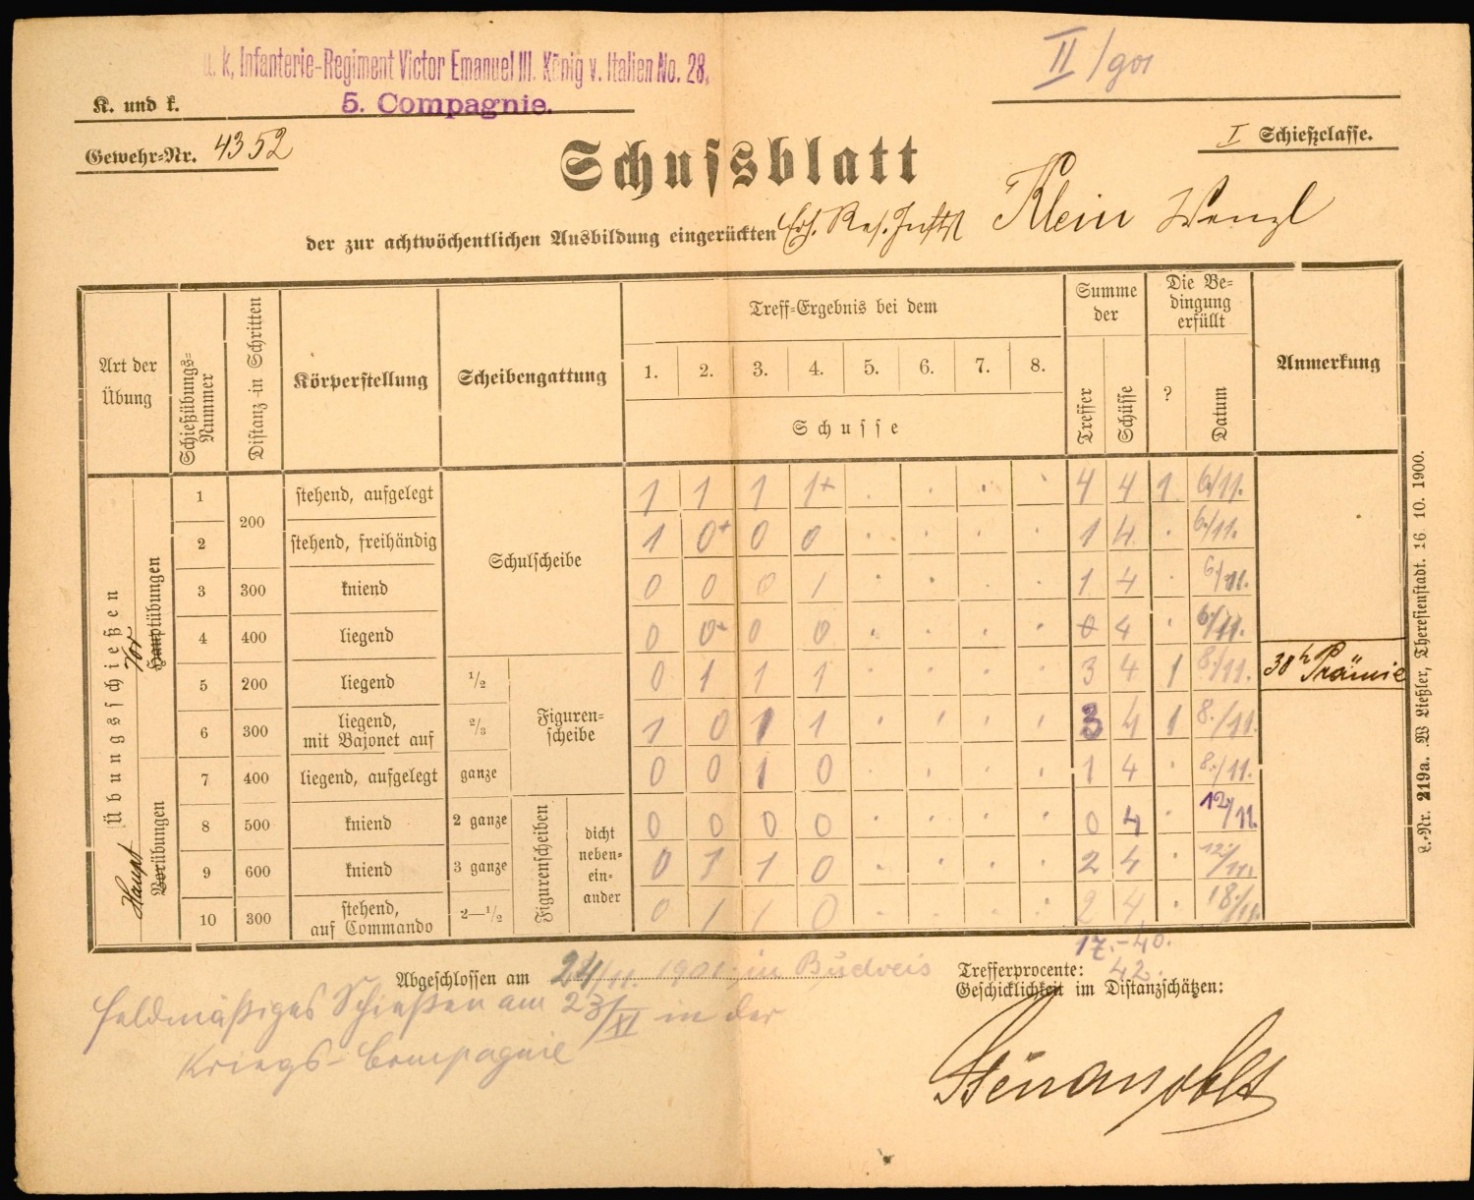 u. k. Infanterie-Regiment Victor Emanuel III. König v. Italien No. 28.
II/901
K. und k.
5. Compagnie.
Gewehr=Nr. 4352
I Schießclasse.
Schussblatt
der zur achtwöchentlichen Ausbildung eingerückten Klein Wenzl
Art der Übung | Schießübungs=Nummer | Distanz in Schritten | Körperstellung | Scheibengattung | Treff=Ergebnis bei dem | Summe der | Die Be=dingung erfüllt | Anmerkung
1. 2. 3. 4. 5. 6. 7. 8. | Treffer | Schüsse | ? | Datum
Schusse
Übungsschießen
Vor Hauptübungen
1 | 200 | stehend, aufgelegt | Schulscheibe | 1 1 1 1+ . . . . | 4 | 4 | 1 | 6./11.
2 | stehend, freihändig | 1 0+ 0 0 . . . . | 1 | 4 | . | 6./11.
3 | 300 | kniend | 0 0 0 1 . . . . | 1 | 4 | . | 6./11.
4 | 400 | liegend | 0 0+ 0 0 . . . . | 0 | 4 | . | 6./11.
5 | 200 | liegend | 1/2 | Figuren=scheibe | 0 1 1 1 . . . . | 3 | 4 | 1 | 8./11. | 30h Prämie
6 | 300 | liegend, mit Bajonet auf | 2/3 | 1 0 1 1 . . . . | 3 | 4 | 1 | 8./11.
Haupt Vorübungen
7 | 400 | liegend, aufgelegt | ganze | 0 0 1 0 . . . . | 1 | 4 | . | 8./11.
8 | 500 | kniend | 2 ganze | Figurenscheiben | dicht neben=ein=ander | 0 0 0 0 . . . . | 0 | 4 | . | 12/11.
9 | 600 | kniend | 3 ganze | 0 1 1 0 . . . . | 2 | 4 | . | 12./11.
10 | 300 | stehend, auf Commando | 2—1/2 | 0 1 1 0 . . . . | 2 | 4 | . | 18./11.
17.-40.
Abgeschlossen am 24/11. 1901, in Budweis
Trefferprocente: 42.
Geschicklichkeit im Distanzschätzen:
feldmäßiges Schießen am 23/XI in der
Kriegs-Compagnie
L.=Nr. 219a. W Ließler, Theresienstadt. 16. 10. 1900.